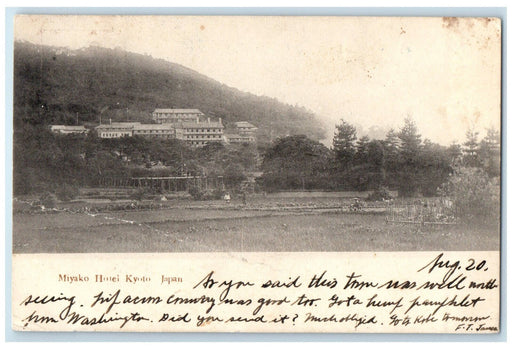 Aug. 20.
Miyako Hotel Kyoto Japan
As you said this town was well worth
seeing. across country was good too. Got a pamphlet
from Washington. Did you send it? Much obliged. Go to Kobe tomorrow
F. T.